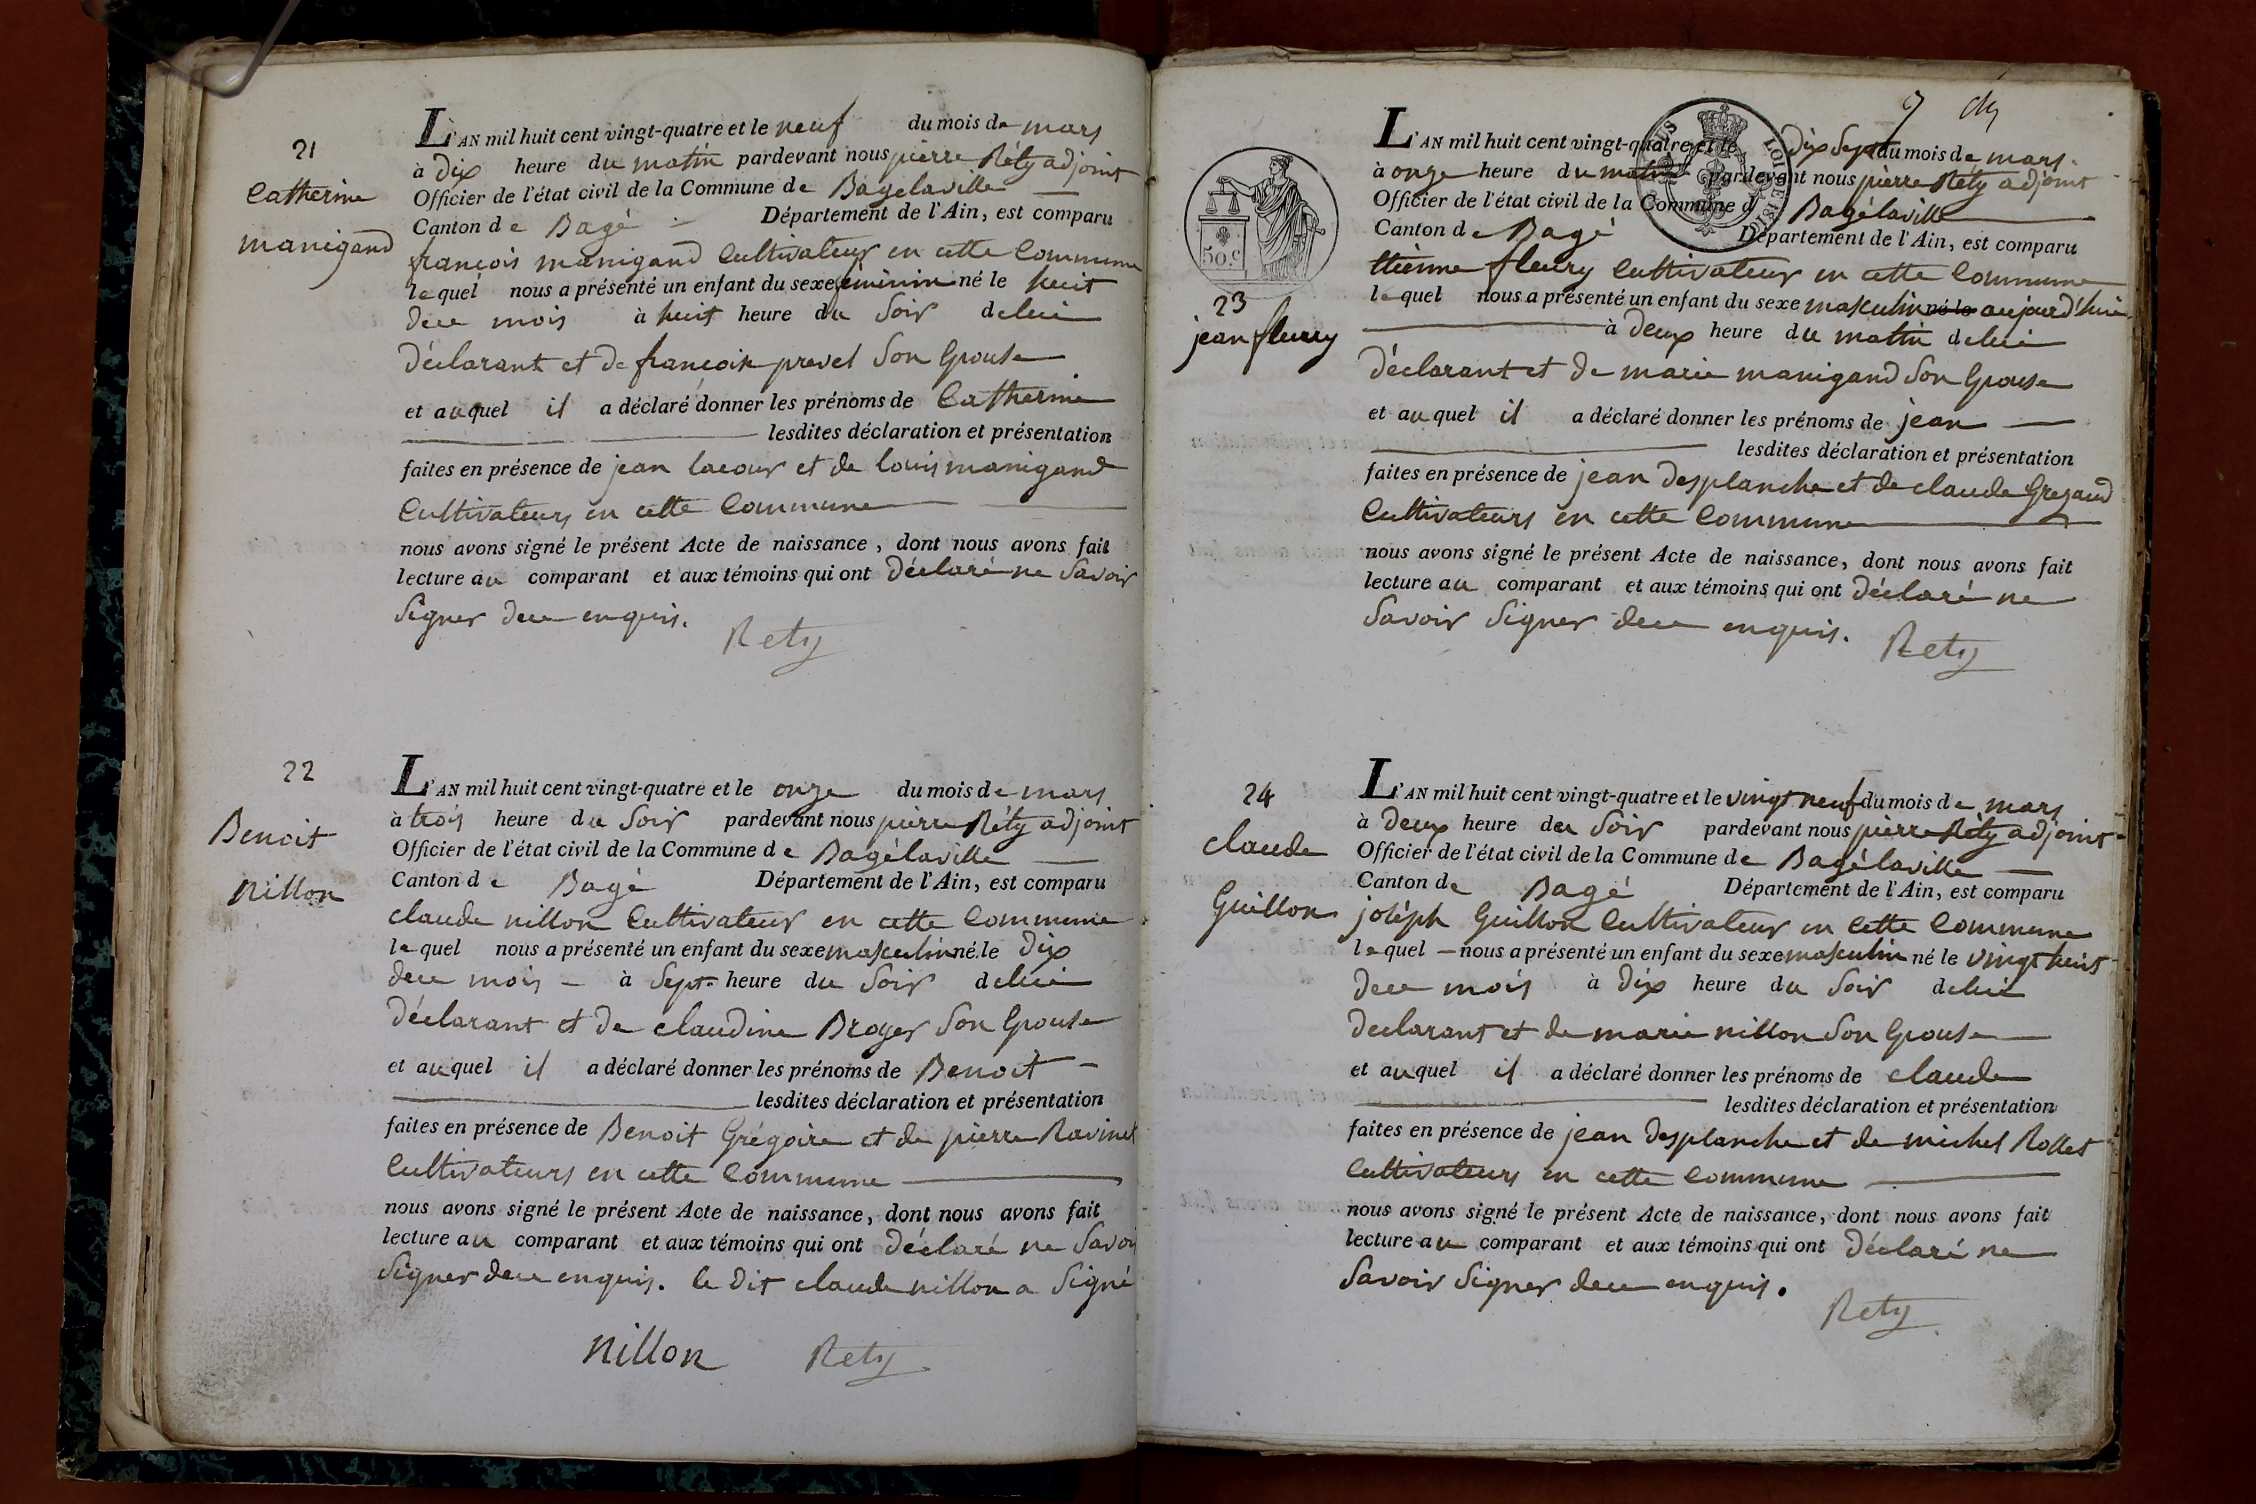 21
Catherine
manigand
L'AN mil huit cent vingt-quatre et le neuf du mois de mars
à dix heure du matin pardevant nous pierre Réty adjoint
Officier de l'état civil de la Commune de Bagélaville
Canton de Bagé Département de l'Ain, est comparu
françois manigand Cultivateur en cette Commune
lequel nous a présenté un enfant du sexe féminin né le huit
du mois à huit heure du Soir de lui
déclarant et de françoise prevel Son Epouse
et auquel il a déclaré donner les prénoms de Catherine
lesdites déclaration et présentation
faites en présence de jean lacour et de louis manigand
Cultivateurs en cette Commune
nous avons signé le présent Acte de naissance, dont nous avons fait
lecture au comparant et aux témoins qui ont déclaré ne Savoir
Signer de ce enquis.
Rety
22
Benoit
nillon
L'AN mil huit cent vingt-quatre et le onze du mois de mars
à trois heure du Soir pardevant nous pierre Réty adjoint
Officier de l'état civil de la Commune de Bagélaville
Canton de Bagé Département de l'Ain, est comparu
claude nillon Cultivateur en cette Commune
lequel nous a présenté un enfant du sexe masculin né le dix
du mois à Sept heure du Soir de lui
déclarant et de claudine Broyer Son Epouse
et auquel il a déclaré donner les prénoms de Benoit
lesdites déclaration et présentation
faites en présence de Benoit Grégoire et de pierre Ravinet
Cultivateurs en cette Commune
nous avons signé le présent Acte de naissance, dont nous avons fait
lecture au comparant et aux témoins qui ont déclaré ne Savoir
Signer de ce enquis. le dit claude nillon a Signé
nillon Rety
50.c
23
jean fleury
L'AN mil huit cent vingt-quatre et le dix Sept du mois de mars
à onze heure du matin pardevant nous pierre Réty adjoint
Officier de l'état civil de la Commune de Bagélaville
Canton de Bagé Département de l'Ain, est comparu
Etienne fleury Cultivateur en cette Commune
lequel nous a présenté un enfant du sexe masculin né le aujourd'hui
à deux heure du matin de lui
déclarant et de marie manigand Son Epouse
et auquel il a déclaré donner les prénoms de jean
lesdites déclaration et présentation
faites en présence de jean desplanche et de claude Gregaud
Cultivateurs en cette Commune
nous avons signé le présent Acte de naissance, dont nous avons fait
lecture au comparant et aux témoins qui ont déclaré ne
Savoir Signer de ce enquis.
Rety
24
claude
Guillon
L'AN mil huit cent vingt-quatre et le vingt neuf du mois de mars
à deux heure du Soir pardevant nous pierre Réty adjoint
Officier de l'état civil de la Commune de Bagélaville
Canton de Bagé Département de l'Ain, est comparu
joséph Guillon Cultivateur en cette Commune
lequel nous a présenté un enfant du sexe masculin né le vingt huit
du mois à dix heure du Soir de lui
declarant et de marie nillon Son Epouse
et auquel il a déclaré donner les prénoms de claude
lesdites déclaration et présentation
faites en présence de jean desplanche et de michel Rollet
Cultivateurs en cette Commune
nous avons signé le présent Acte de naissance, dont nous avons fait
lecture au comparant et aux témoins qui ont déclaré ne
Savoir Signer de ce enquis.
Rety